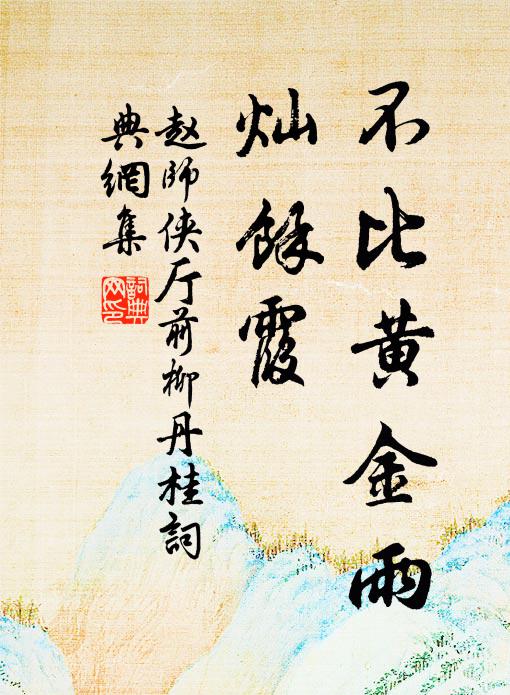 不比黄金雨
灿馀霞
赵师侠厅前柳丹桂詞
典網集
詞典
网印